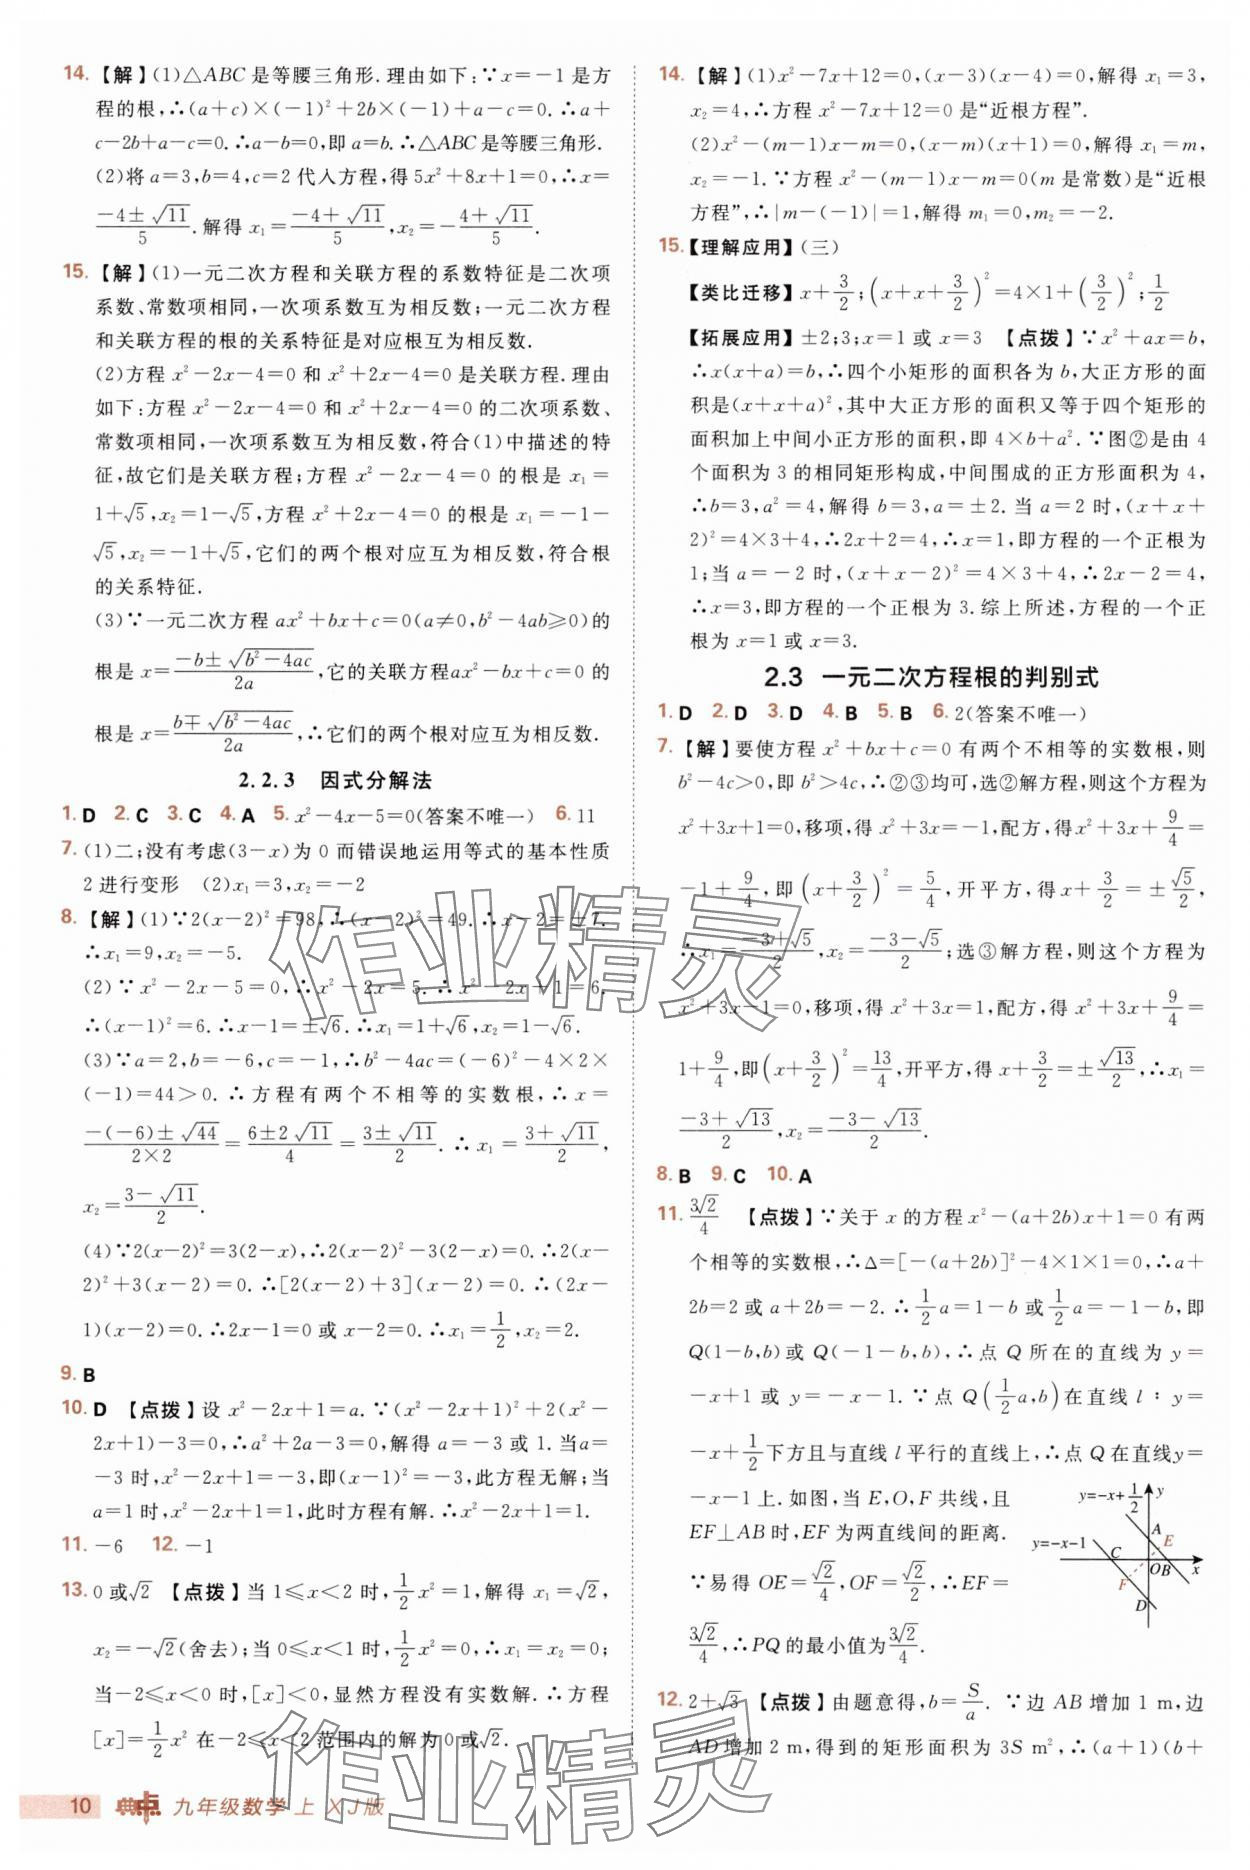 14. 【解】(1)△ABC 是等腰三角形. 理由如下:∵x=-1 是方
程的根,∴(a+c)×(-1)²+2b×(-1)+a-c=0. ∴a+
c-2b+a-c=0. ∴a-b=0,即 a=b. ∴△ABC 是等腰三角形.
(2)将 a=3,b=4,c=2 代入方程,得 5x²+8x+1=0,∴x=
(-4±√11)/5. 解得 x₁=(-4+√11)/5,x₂=-(4+√11)/5.
15. 【解】(1)一元二次方程和关联方程的系数特征是二次项
系数、常数项相同,一次项系数互为相反数;一元二次方程
和关联方程的根的关系特征是对应根互为相反数.
(2)方程 x²-2x-4=0 和 x²+2x-4=0 是关联方程. 理由
如下:方程 x²-2x-4=0 和 x²+2x-4=0 的二次项系数、
常数项相同,一次项系数互为相反数,符合(1)中描述的特
征,故它们是关联方程;方程 x²-2x-4=0 的根是 x₁=
1+√5,x₂=1-√5,方程 x²+2x-4=0 的根是 x₁=-1-
√5,x₂=-1+√5,它们的两个根对应互为相反数,符合根
的关系特征.
(3)∵一元二次方程 ax²+bx+c=0(a≠0,b²-4ab≥0)的
根是 x=(-b±√(b²-4ac))/2a,它的关联方程ax²-bx+c=0 的
根是 x=(b∓√(b²-4ac))/2a,∴它们的两个根对应互为相反数.
2.2.3 因式分解法
1. D 2. C 3. C 4. A 5. x²-4x-5=0(答案不唯一) 6. 11
7. (1)二;没有考虑(3-x)为 0 而错误地运用等式的基本性质
2 进行变形 (2)x₁=3,x₂=-2
8. 【解】(1)∵2(x-2)²=98,∴(x-2)²=49. ∴x-2=±7.
∴x₁=9,x₂=-5.
(2)∵x²-2x-5=0,∴x²-2x=5. ∴x²-2x+1=6.
∴(x-1)²=6. ∴x-1=±√6. ∴x₁=1+√6,x₂=1-√6.
(3)∵a=2,b=-6,c=-1,∴b²-4ac=(-6)²-4×2×
(-1)=44>0. ∴方程有两个不相等的实数根,∴x=
(-(-6)±√44)/(2×2)=(6±2√11)/4=(3±√11)/2. ∴x₁=(3+√11)/2,
x₂=(3-√11)/2.
(4)∵2(x-2)²=3(2-x),∴2(x-2)²-3(2-x)=0. ∴2(x-
2)²+3(x-2)=0. ∴[2(x-2)+3](x-2)=0. ∴(2x-
1)(x-2)=0. ∴2x-1=0 或 x-2=0. ∴x₁=1/2,x₂=2.
9. B
10. D 【点拨】设 x²-2x+1=a. ∵(x²-2x+1)²+2(x²-
2x+1)-3=0,∴a²+2a-3=0,解得 a=-3 或 1. 当a=
-3 时,x²-2x+1=-3,即(x-1)²=-3,此方程无解;当
a=1 时,x²-2x+1=1,此时方程有解. ∴x²-2x+1=1.
11. -6 12. -1
13. 0 或√2 【点拨】当 1≤x<2 时,1/2x²=1,解得 x₁=√2,
x₂=-√2(舍去);当 0≤x<1 时,1/2x²=0,∴x₁=x₂=0;
当-2≤x<0 时,[x]<0,显然方程没有实数解. ∴方程
[x]=1/2x² 在-2≤x<2 范围内的解为 0 或√2.
10 典中点 九年级数学 上 XJ版
14. 【解】(1)x²-7x+12=0,(x-3)(x-4)=0,解得 x₁=3,
x₂=4,∴方程 x²-7x+12=0 是“近根方程”.
(2)x²-(m-1)x-m=0,(x-m)(x+1)=0,解得 x₁=m,
x₂=-1. ∵方程 x²-(m-1)x-m=0(m 是常数)是“近根
方程”,∴|m-(-1)|=1,解得 m₁=0,m₂=-2.
15. 【理解应用】(三)
【类比迁移】x+3/2;(x+x+3/2)²=4×1+(3/2)²;1/2
【拓展应用】±2;3;x=1 或 x=3 【点拨】∵x²+ax=b,
∴x(x+a)=b,∴四个小矩形的面积各为 b,大正方形的面
积是(x+x+a)²,其中大正方形的面积又等于四个矩形的
面积加上中间小正方形的面积,即 4×b+a². ∵图②是由 4
个面积为 3 的相同矩形构成,中间围成的正方形面积为 4,
∴b=3,a²=4,解得 b=3,a=±2. 当 a=2 时,(x+x+
2)²=4×3+4,∴2x+2=4,∴x=1,即方程的一个正根为
1;当 a=-2 时,(x+x-2)²=4×3+4,∴2x-2=4,
∴x=3,即方程的一个正根为 3. 综上所述,方程的一个正
根为 x=1 或 x=3.
2.3 一元二次方程根的判别式
1. D 2. D 3. D 4. B 5. B 6. 2(答案不唯一)
7. 【解】要使方程 x²+bx+c=0 有两个不相等的实数根,则
b²-4c>0,即 b²>4c,∴②③均可,选②解方程,则这个方程为
x²+3x+1=0,移项,得 x²+3x=-1,配方,得x²+3x+9/4=
-1+9/4,即(x+3/2)²=5/4,开平方,得 x+3/2=±√5/2,
∴x₁=(-3+√5)/2,x₂=(-3-√5)/2;选③解方程,则这个方程为
x²+3x-1=0,移项,得 x²+3x=1,配方,得 x²+3x+9/4=
1+9/4,即(x+3/2)²=13/4,开平方,得 x+3/2=±√13/2,∴x₁=
(-3+√13)/2,x₂=(-3-√13)/2.
8. B 9. C 10. A
11. 3√2/4 【点拨】∵关于 x 的方程 x²-(a+2b)x+1=0 有两
个相等的实数根,∴Δ=[-(a+2b)]²-4×1×1=0,∴a+
2b=2 或 a+2b=-2. ∴1/2a=1-b 或1/2a=-1-b,即
Q(1-b,b)或 Q(-1-b,b),∴点 Q 所在的直线为 y=
-x+1 或 y=-x-1. ∵点 Q(1/2a,b)在直线 l:y=
-x+1/2下方且与直线 l 平行的直线上,∴点 Q 在直线y=
-x-1上. 如图,当 E,O,F 共线,且
EF⊥AB 时,EF 为两直线间的距离.
∵易得 OE=√2/4,OF=√2/2,∴EF=
3√2/4,∴PQ 的最小值为3√2/4.
y=-x+1/2 y
A
E
y=-x-1 C
O B x
F
D
12. 2+√3 【点拨】由题意得,b=S/a. ∵边 AB 增加 1 m,边
AD增加 2 m,得到的矩形面积为 3S m²,∴(a+1)(b+
作业精灵
作业精灵